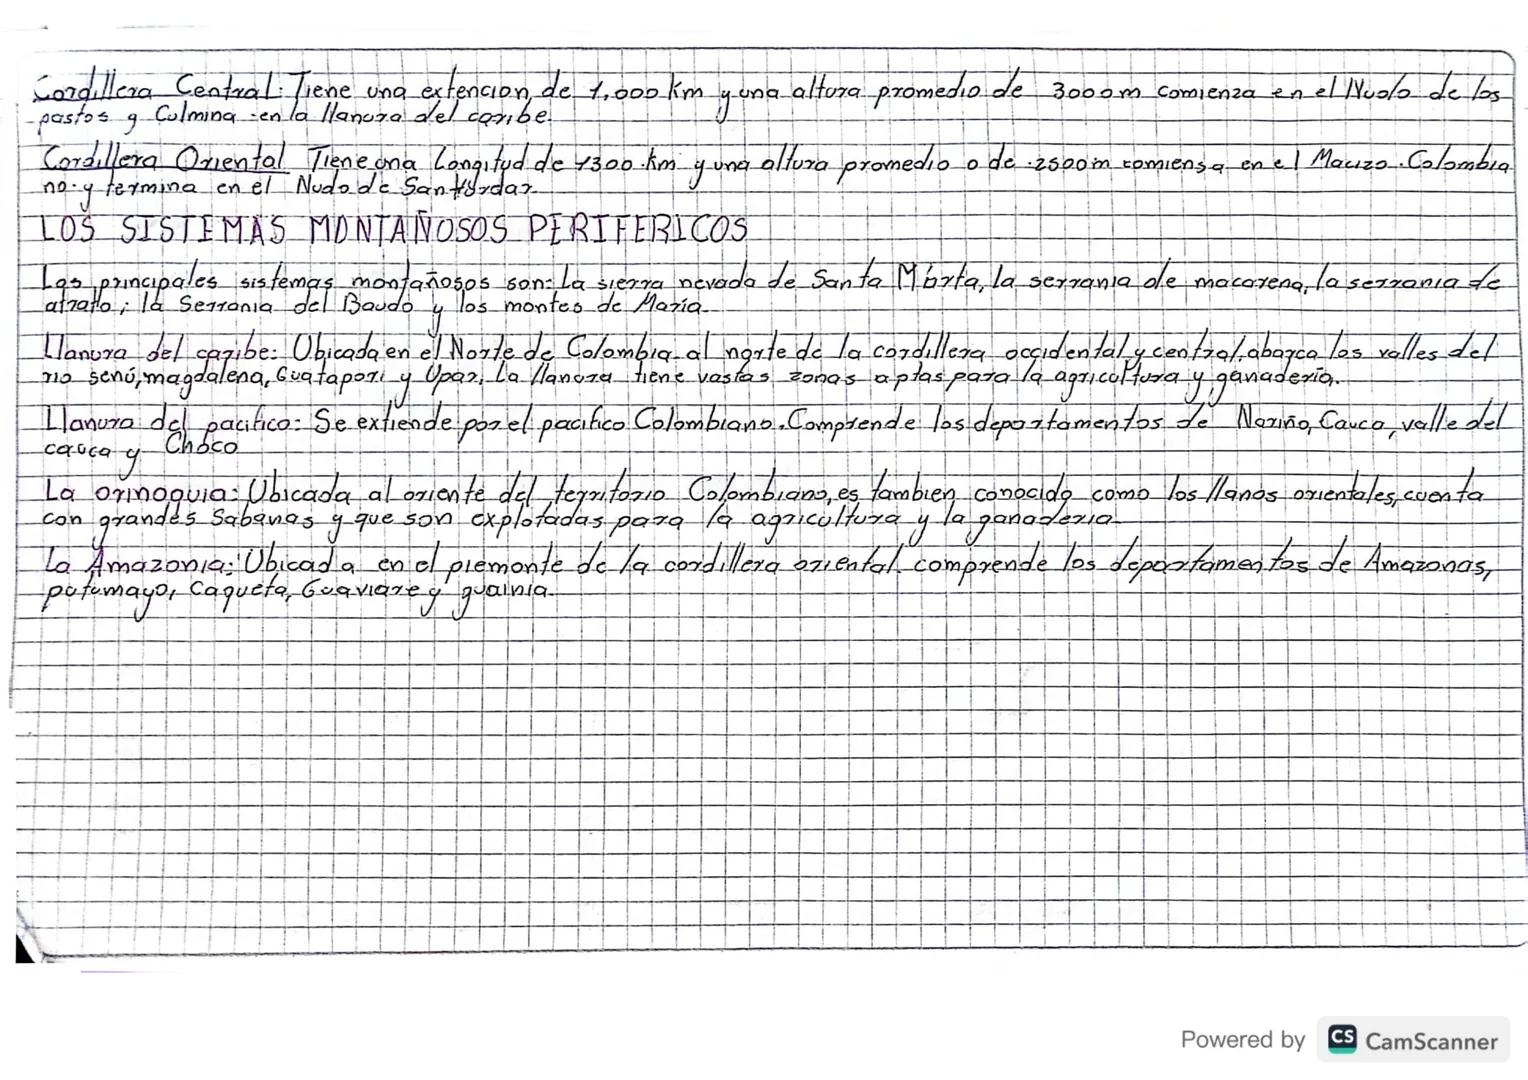 Cordillera Central: Tiene una extencion de 1,000 km y una altura promedio de 3000m comienza en el Nudo de los
pastos y Culmina en la llanura del caribe.
Cordillera Oriental Tiene una Longitud de 1300 km y una altura promedio o de 2500m comiensa en el Macizo Colombia
no y termina en el Nudo de Santurdar
LOS SISTEMAS MONTAÑOSOS PERIFERICOS
Los principales sistemas montañosos son: La sierra nevada de Santa Marta, la serrania de macarena, la serrania de
atrato; la Serrania del Baudo y los montes de Maria.
Llanura del caribe: Ubicada en el Norte de Colombia al norte de la cordillera occidental y central, abarca los valles del
rio senú, magdalena, Guatapori y Upar, La llanura tiene vastas zonas aptas para la agricultura y ganaderia.
Llanura del pacifico: Se extiende por el pacifico Colombiano. Comprende los departamentos de Nariño, Cauca, valle del
cauca y Choco
La orinoquia: Ubicada al oriente del territorio Colombiano, es tambien conocido como los llanos orientales, cuenta
con grandes Sabanas y que son explotadas para la agricultura y la ganaderia
La Amazonia: Ubicada en el piemonte de la cordillera oriental comprende los departamentos de Amazonas,
putumayo, Caqueta, Guaviare y guainia.
Powered by CS CamScanner